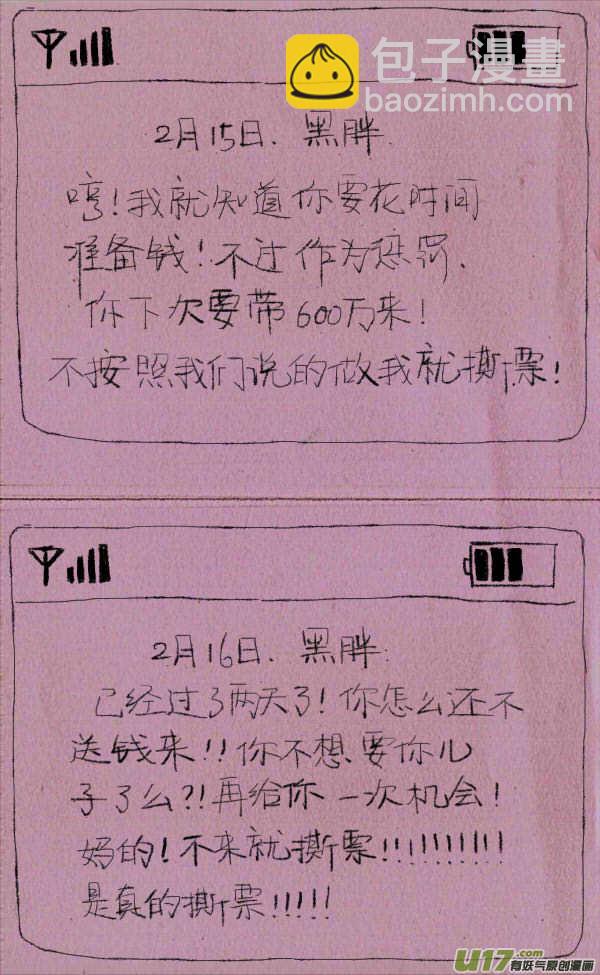 包子漫畫
baozimh.com
2月15日. 黑胖.
哼!我就知道你要花时间
准备钱!不过作为惩罚、
你下次要带600万来!
不按照我们说的做我就撕票!
2月16日. 黑胖:
已经过了两天了!你怎么还不
送钱来!!你不想要你儿
子了么?!再给你一次机会!
妈的!不来就撕票!!!!!!!!!!
是真的撕票!!!!!
U17.com
有妖气原创漫画